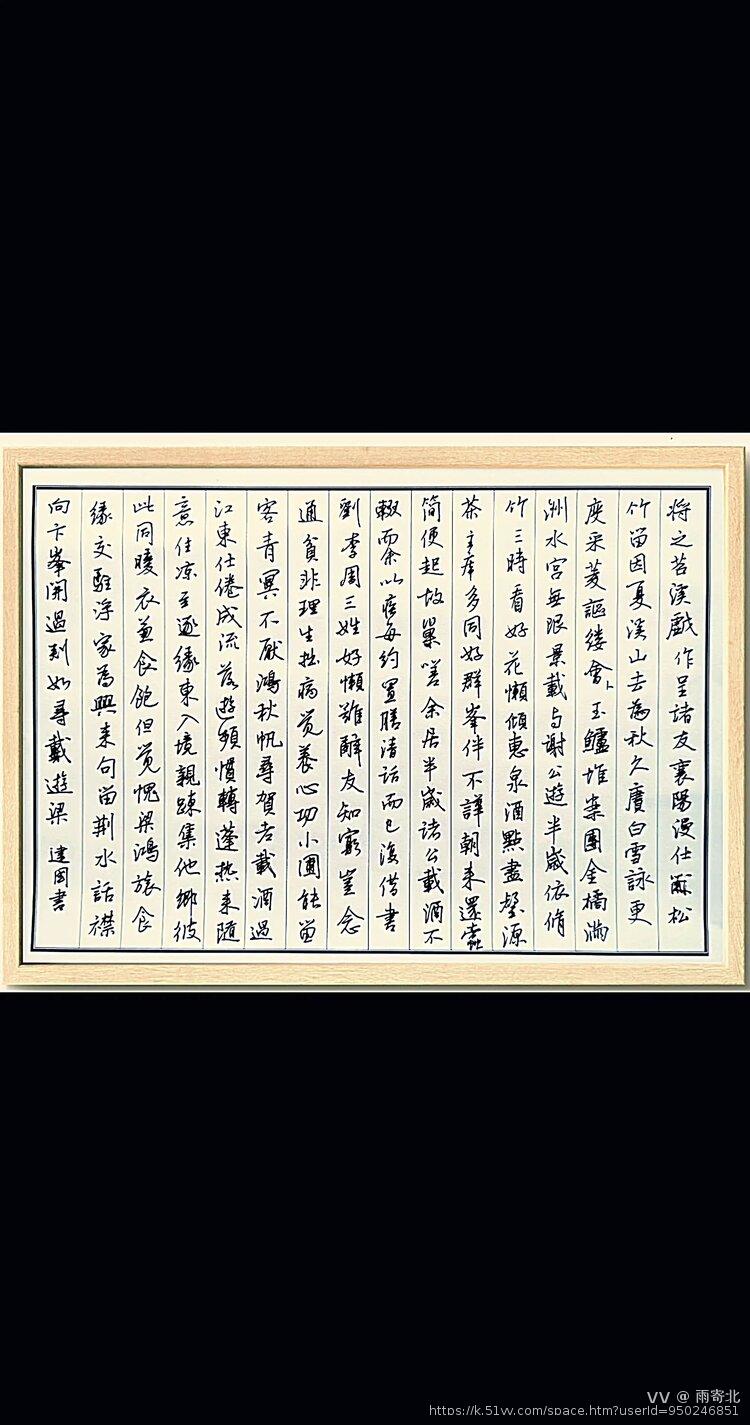 将之苕溪戲作呈諸友襄陽漫仕黻松
竹留因夏溪山去為秋久賡白雪詠更
度采菱謳缕會卜玉鱸堆案團金橘滿
洲水宮無限景載与謝公遊半歲依脩
竹三時看好花懶傾惠泉酒點盡壑源
茶主席多同好群峯伴不譁朝来還蠹
簡便起故巢嗟余居半歲諸公載酒不
輟而余以疾每約置膳清話而已復借書
劉李周三姓好懶難辭友知窮豈念
通貧非理生拙病觉養心功小圃能留
客青冥不厭鴻秋帆尋賀老載酒過
江東仕倦成流落遊頻慣轉蓬热来隨
意住凉至逐緣東入境親疎集他鄉彼
此同暖衣兼食飽但觉愧梁鴻旅食
緣交駐浄家為興来句留荆水話襟
向卞峯開過剡如尋戴遊梁 建国書
VV @ 雨寄北
https://k.51vv.com/space.htm?userId=950246851